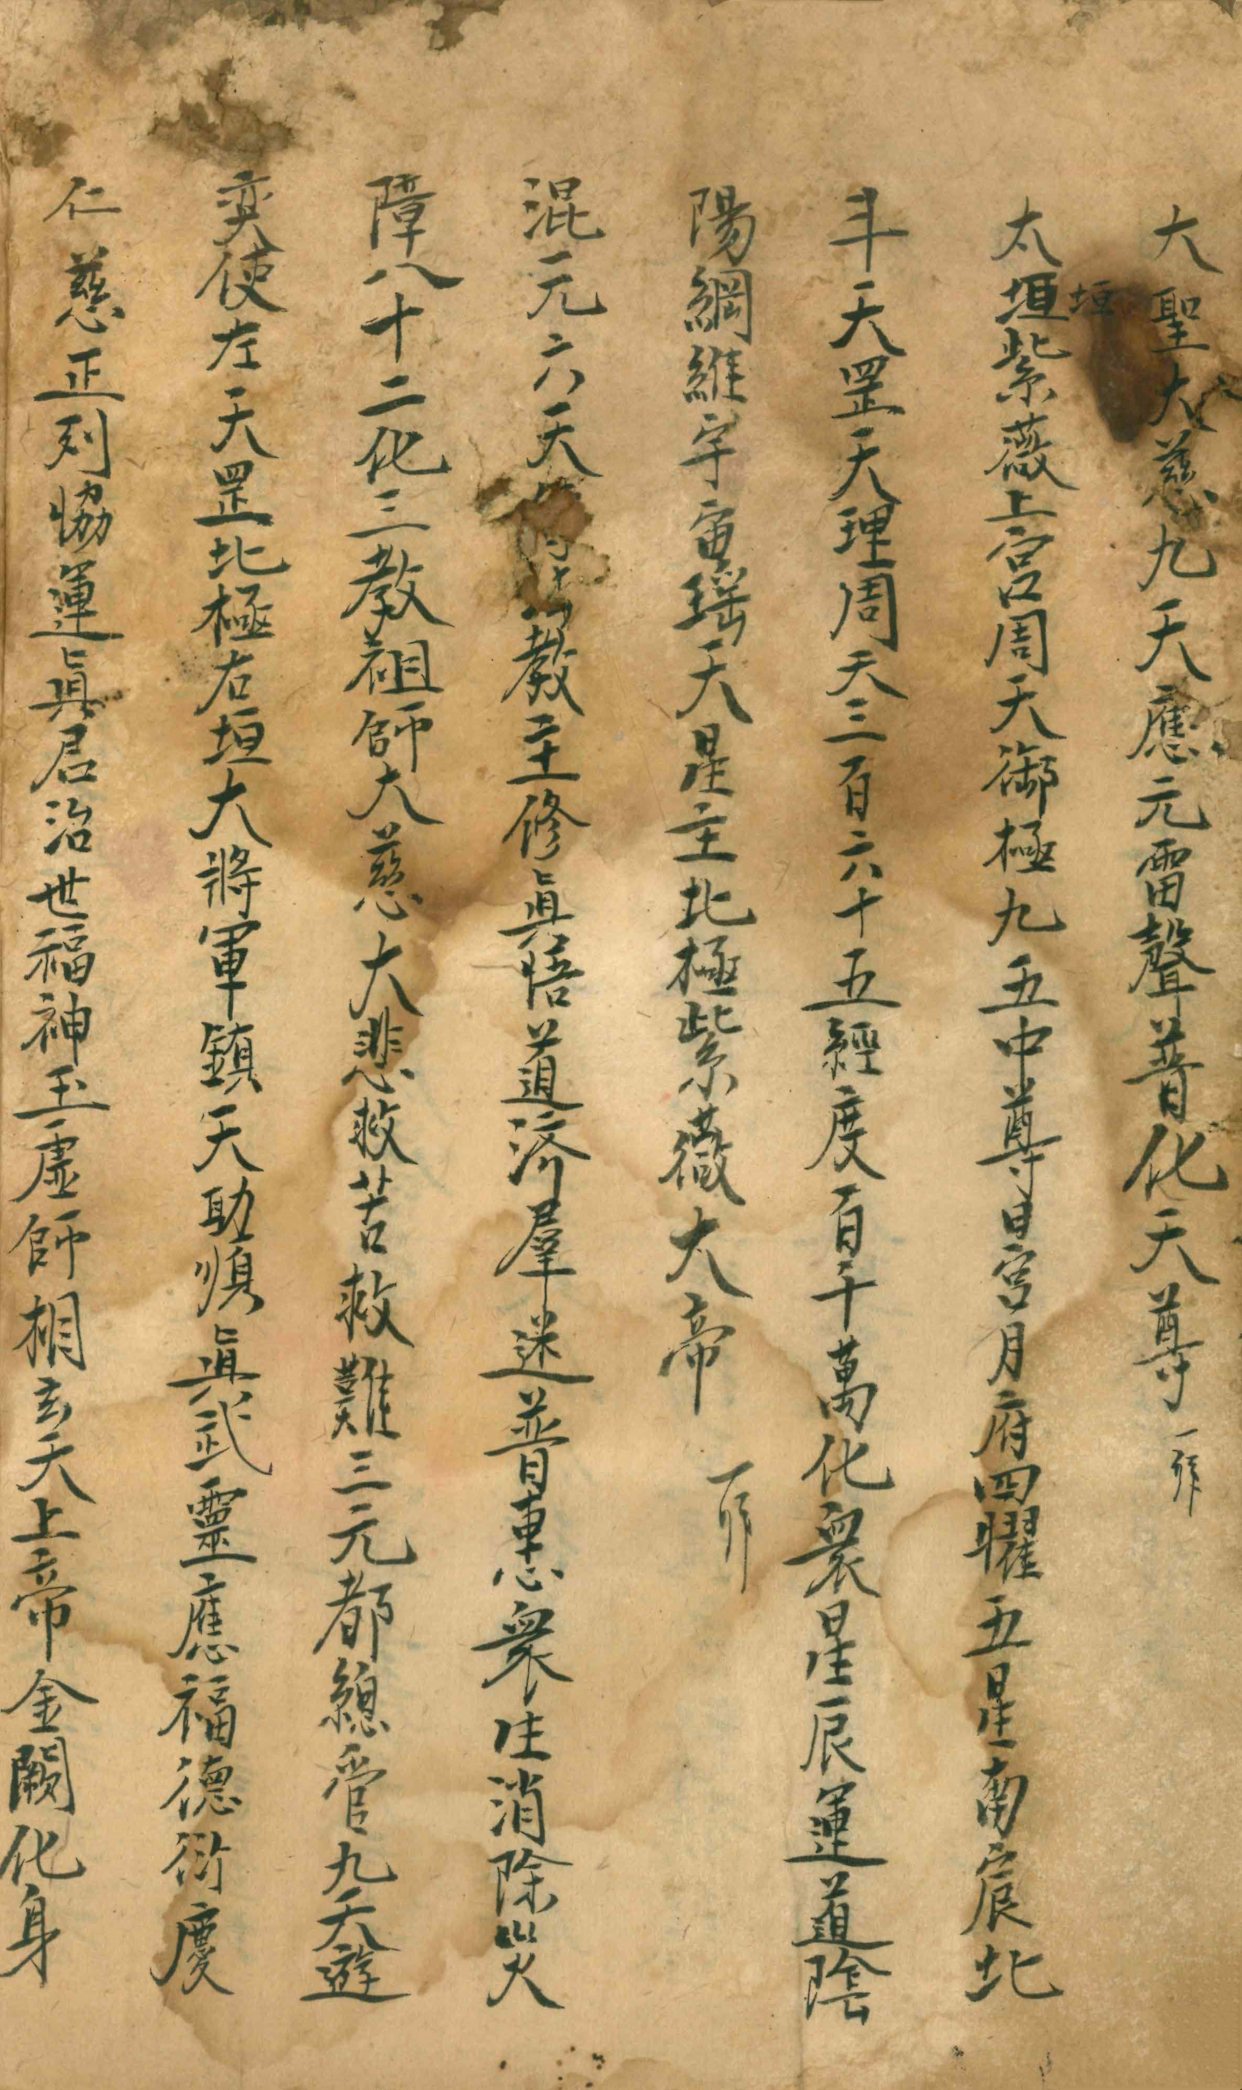 大聖大慈九天應元雷聲普化天尊
太垣紫薇上宮周天御極九五中尊日宮月府四曜五星南宸北
垣
斗天罡天理周天三百六十五經度百千萬化衆星辰運道陰
陽綱維宇宙瑤天星主北極紫薇大帝
混元六天教主修眞悟道济羣迷普惠衆生消除災
障八十二化三教祖師大慈大悲救苦救難三元都總管九天遊
奕使左天罡北極右垣大將軍鎮天助順眞武靈應福德衍慶
仁慈正列協運眞君治世福神玉虛師相玄天上帝金闕化身